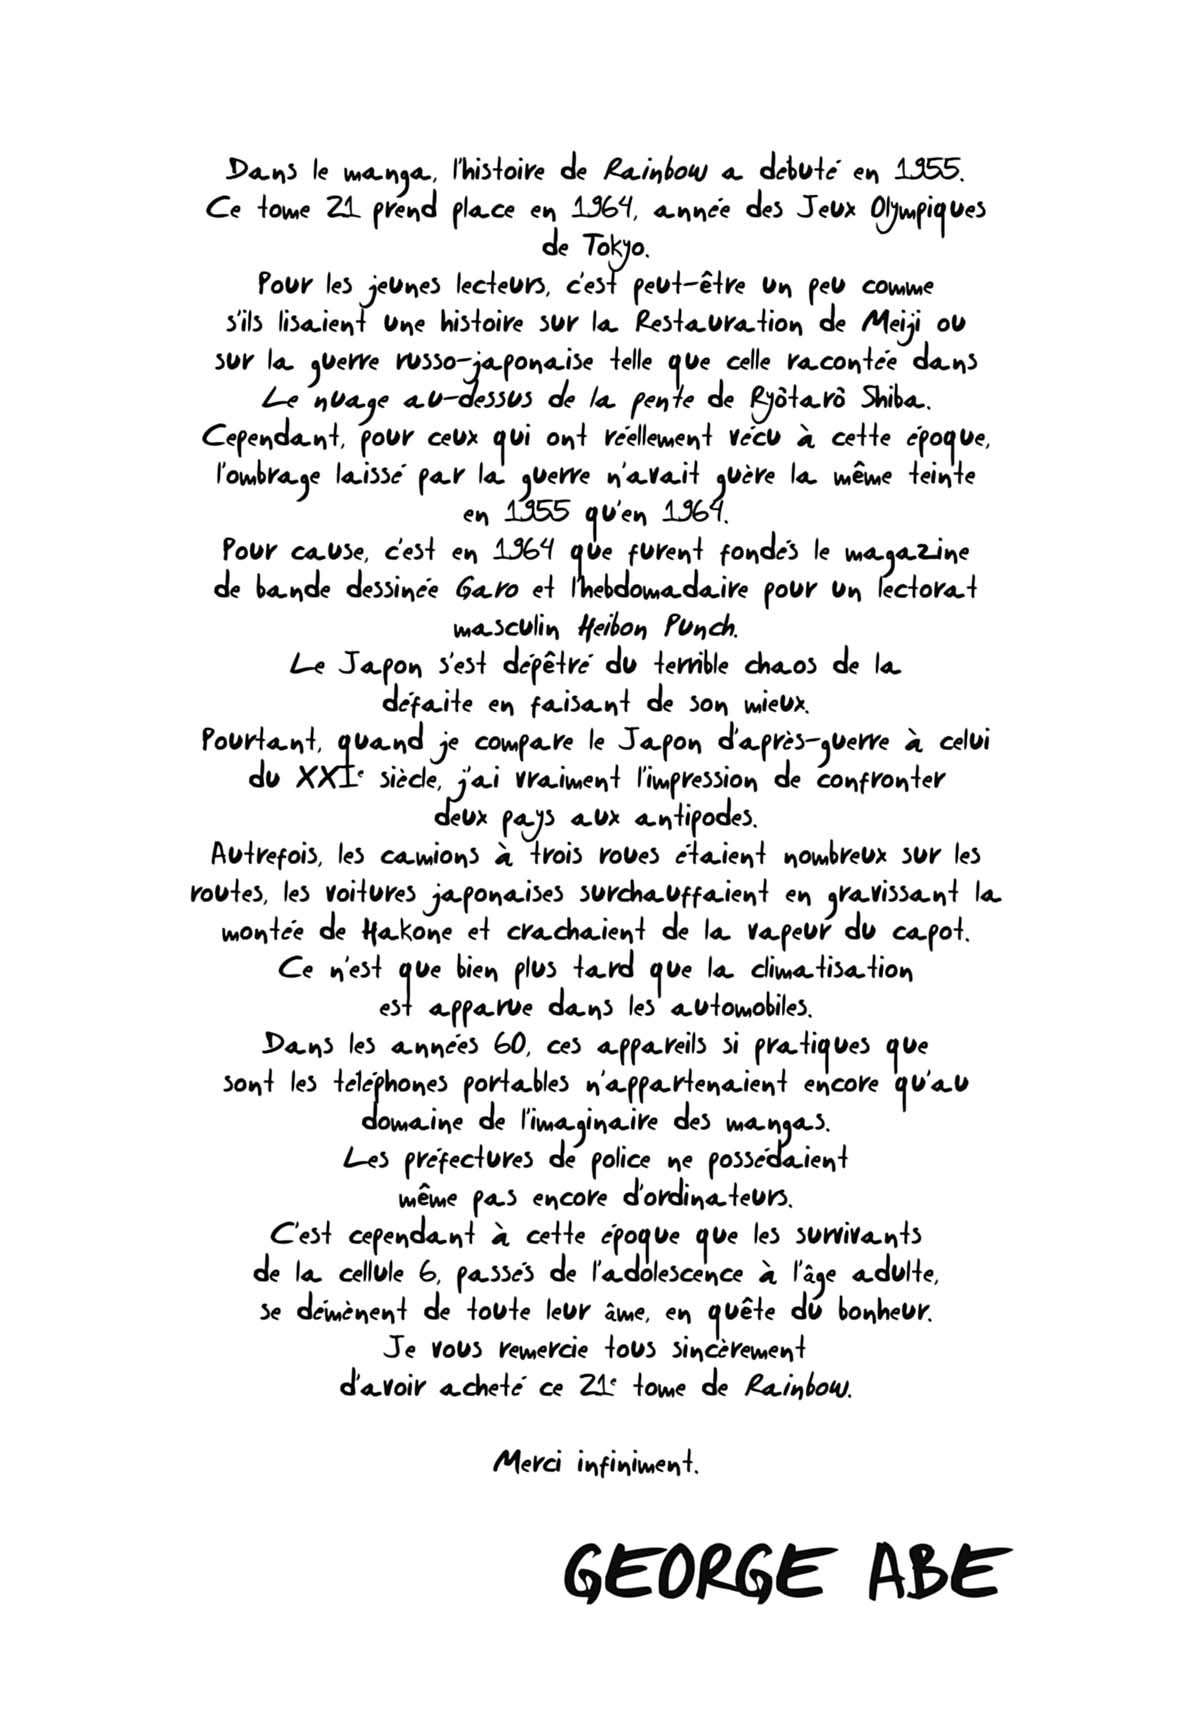 Dans le manga, l'histoire de Rainbow a débuté en 1955.
Ce tome 21 prend place en 1964, année des Jeux Olympiques
de Tokyo.
Pour les jeunes lecteurs, c'est peut-être un peu comme
s'ils lisaient une histoire sur la Restauration de Meiji ou
sur la guerre russo-japonaise telle que celle racontée dans
Le nuage au-dessus de la pente de Ryôtarô Shiba.
Cependant, pour ceux qui ont réellement vécu à cette époque,
l'ombrage laissé par la guerre n'avait guère la même teinte
en 1955 qu'en 1964.
Pour cause, c'est en 1964 que furent fondés le magazine
de bande dessinée Garo et l'hebdomadaire pour un lectorat
masculin Heibon Punch.
Le Japon s'est dépêtré du terrible chaos de la
défaite en faisant de son mieux.
Pourtant, quand je compare le Japon d'après-guerre à celui
du XXIe siècle, j'ai vraiment l'impression de confronter
deux pays aux antipodes.
Autrefois, les camions à trois roues étaient nombreux sur les
routes, les voitures japonaises surchauffaient en gravissant la
montée de Hakone et crachaient de la vapeur du capot.
Ce n'est que bien plus tard que la climatisation
est apparue dans les automobiles.
Dans les années 60, ces appareils si pratiques que
sont les téléphones portables n'appartenaient encore qu'au
domaine de l'imaginaire des mangas.
Les préfectures de police ne possédaient
même pas encore d'ordinateurs.
C'est cependant à cette époque que les survivants
de la cellule 6, passés de l'adolescence à l'âge adulte,
se démènent de toute leur âme, en quête du bonheur.
Je vous remercie tous sincèrement
d'avoir acheté ce 21e tome de Rainbow.
Merci infiniment.
GEORGE ABE